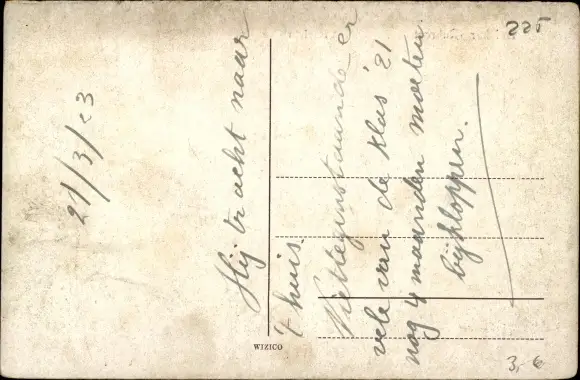 21/3/23
Hij tracht naar
't huis.
Niettegenstaande er
vele van de klas '21
nog 4 maanden moeten
bijkloppen.
225
WIZICO
3,6